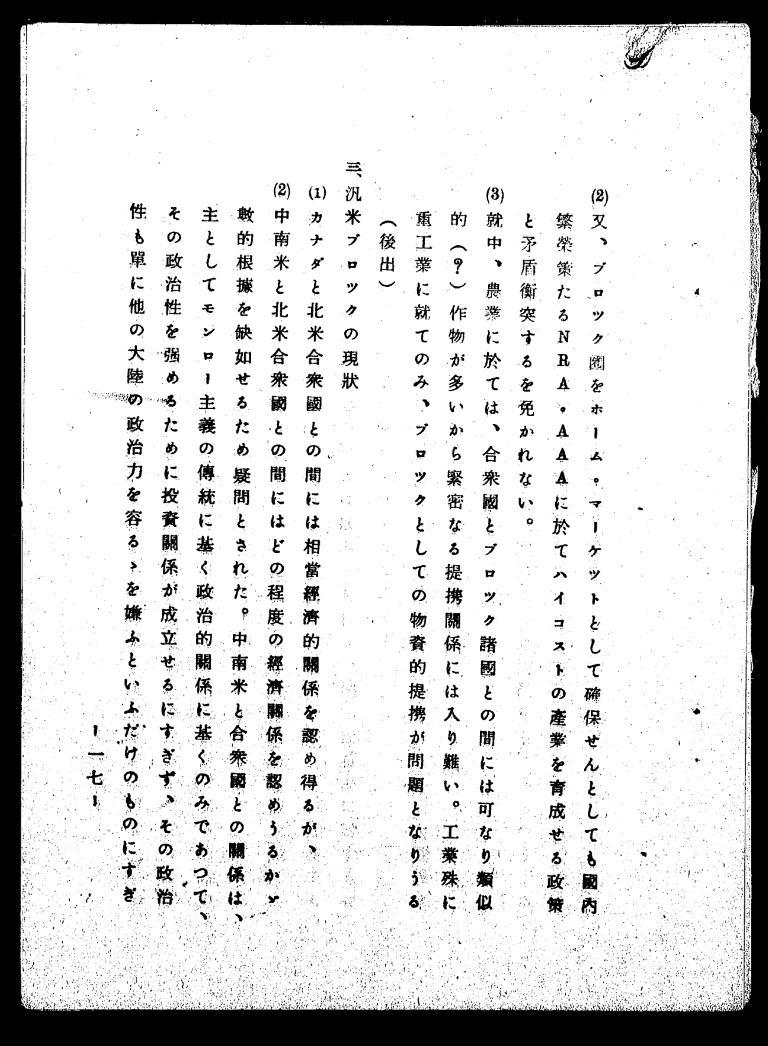 (2)又、ブロック圏をホーム・マーケットとして確保せんとしても國內
繁榮策たるNRA・AAAに於てハイコストの產業を育成せる政策
と矛盾衝突するを免かれない。
(3)就中、農業に於ては、合衆國とブロック諸國との間には可なり類似
的(?)作物が多いから緊密なる提携關係には入り難い。工業殊に
重工業に就てのみ、ブロックとしての物資的提携が問題となりうる
(後出)
三、汎米ブロックの現狀
(1)カナダと北米合衆國との間には相當經濟的關係を認め得るが、
(2)中南米と北米合衆國との間にはどの程度の經濟關係を認めうるかゞ
數的根據を缺如せるため疑問とされた。中南米と合衆國との關係は、
主としてモンロー主義の傳統に基く政治的關係に基くのみであつて、
その政治性を強めるために投資關係が成立せるにすぎず、その政治
性も單に他の大陸の政治力を容るゝを嫌ふといふだけのものにすぎ
ー一七ー